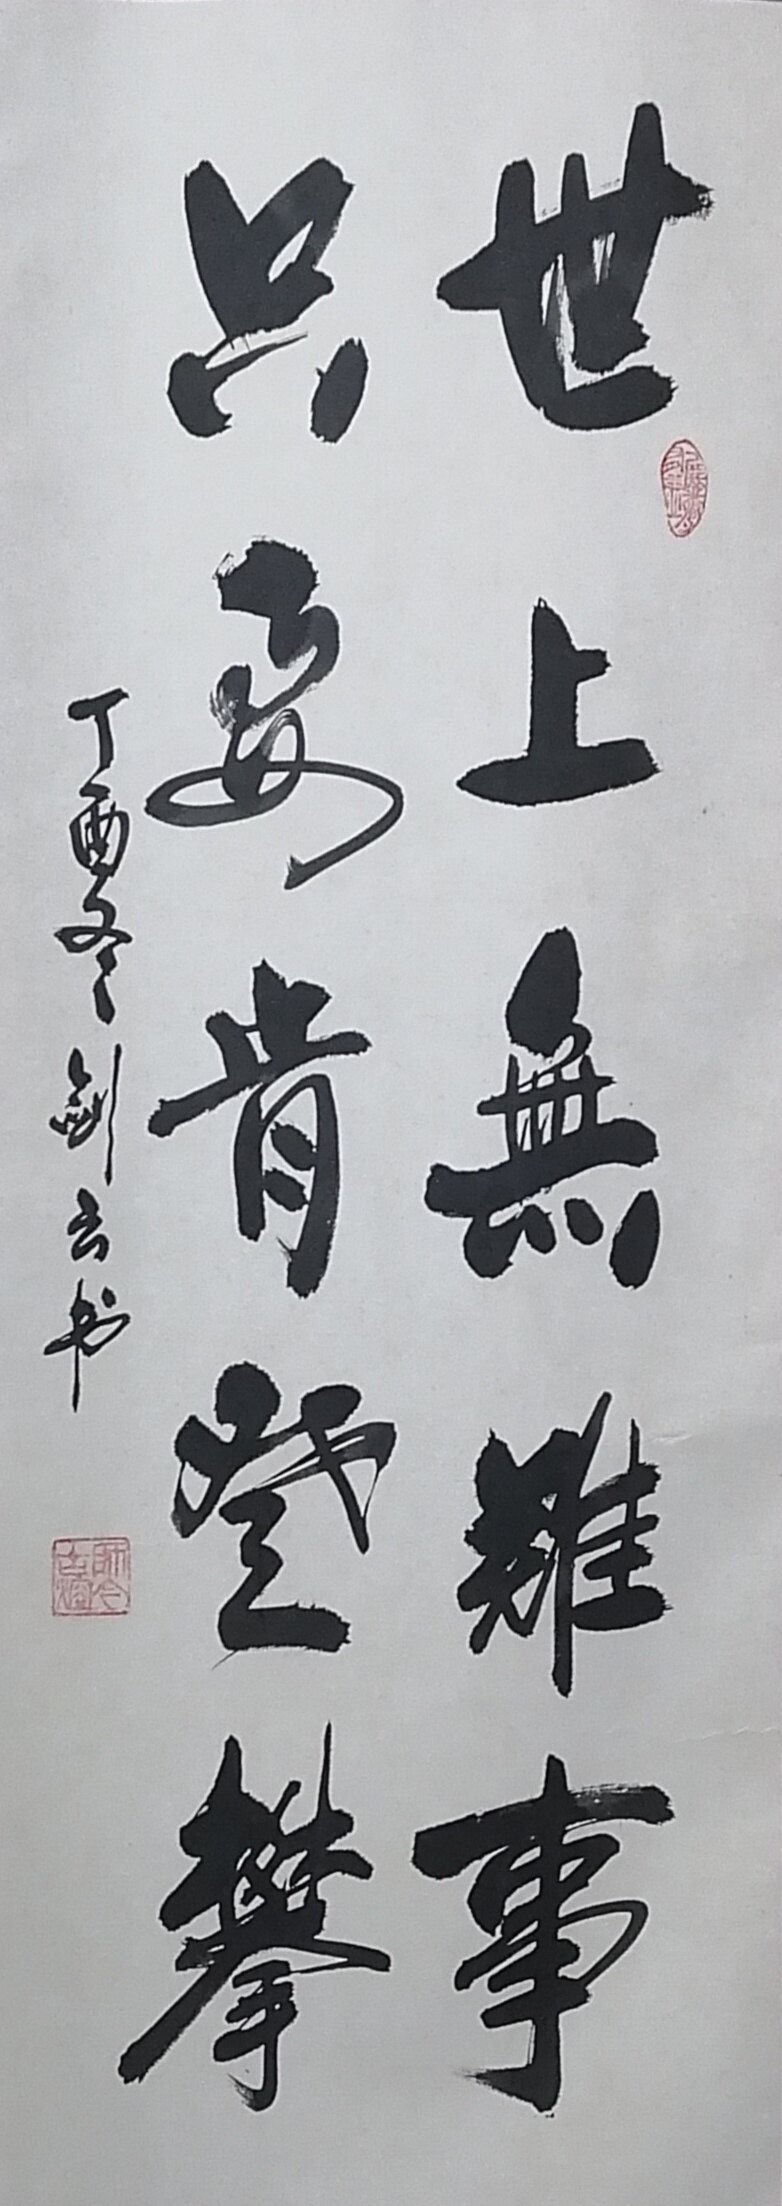 世上無難事
只要肯登攀
丁酉冬剑云书